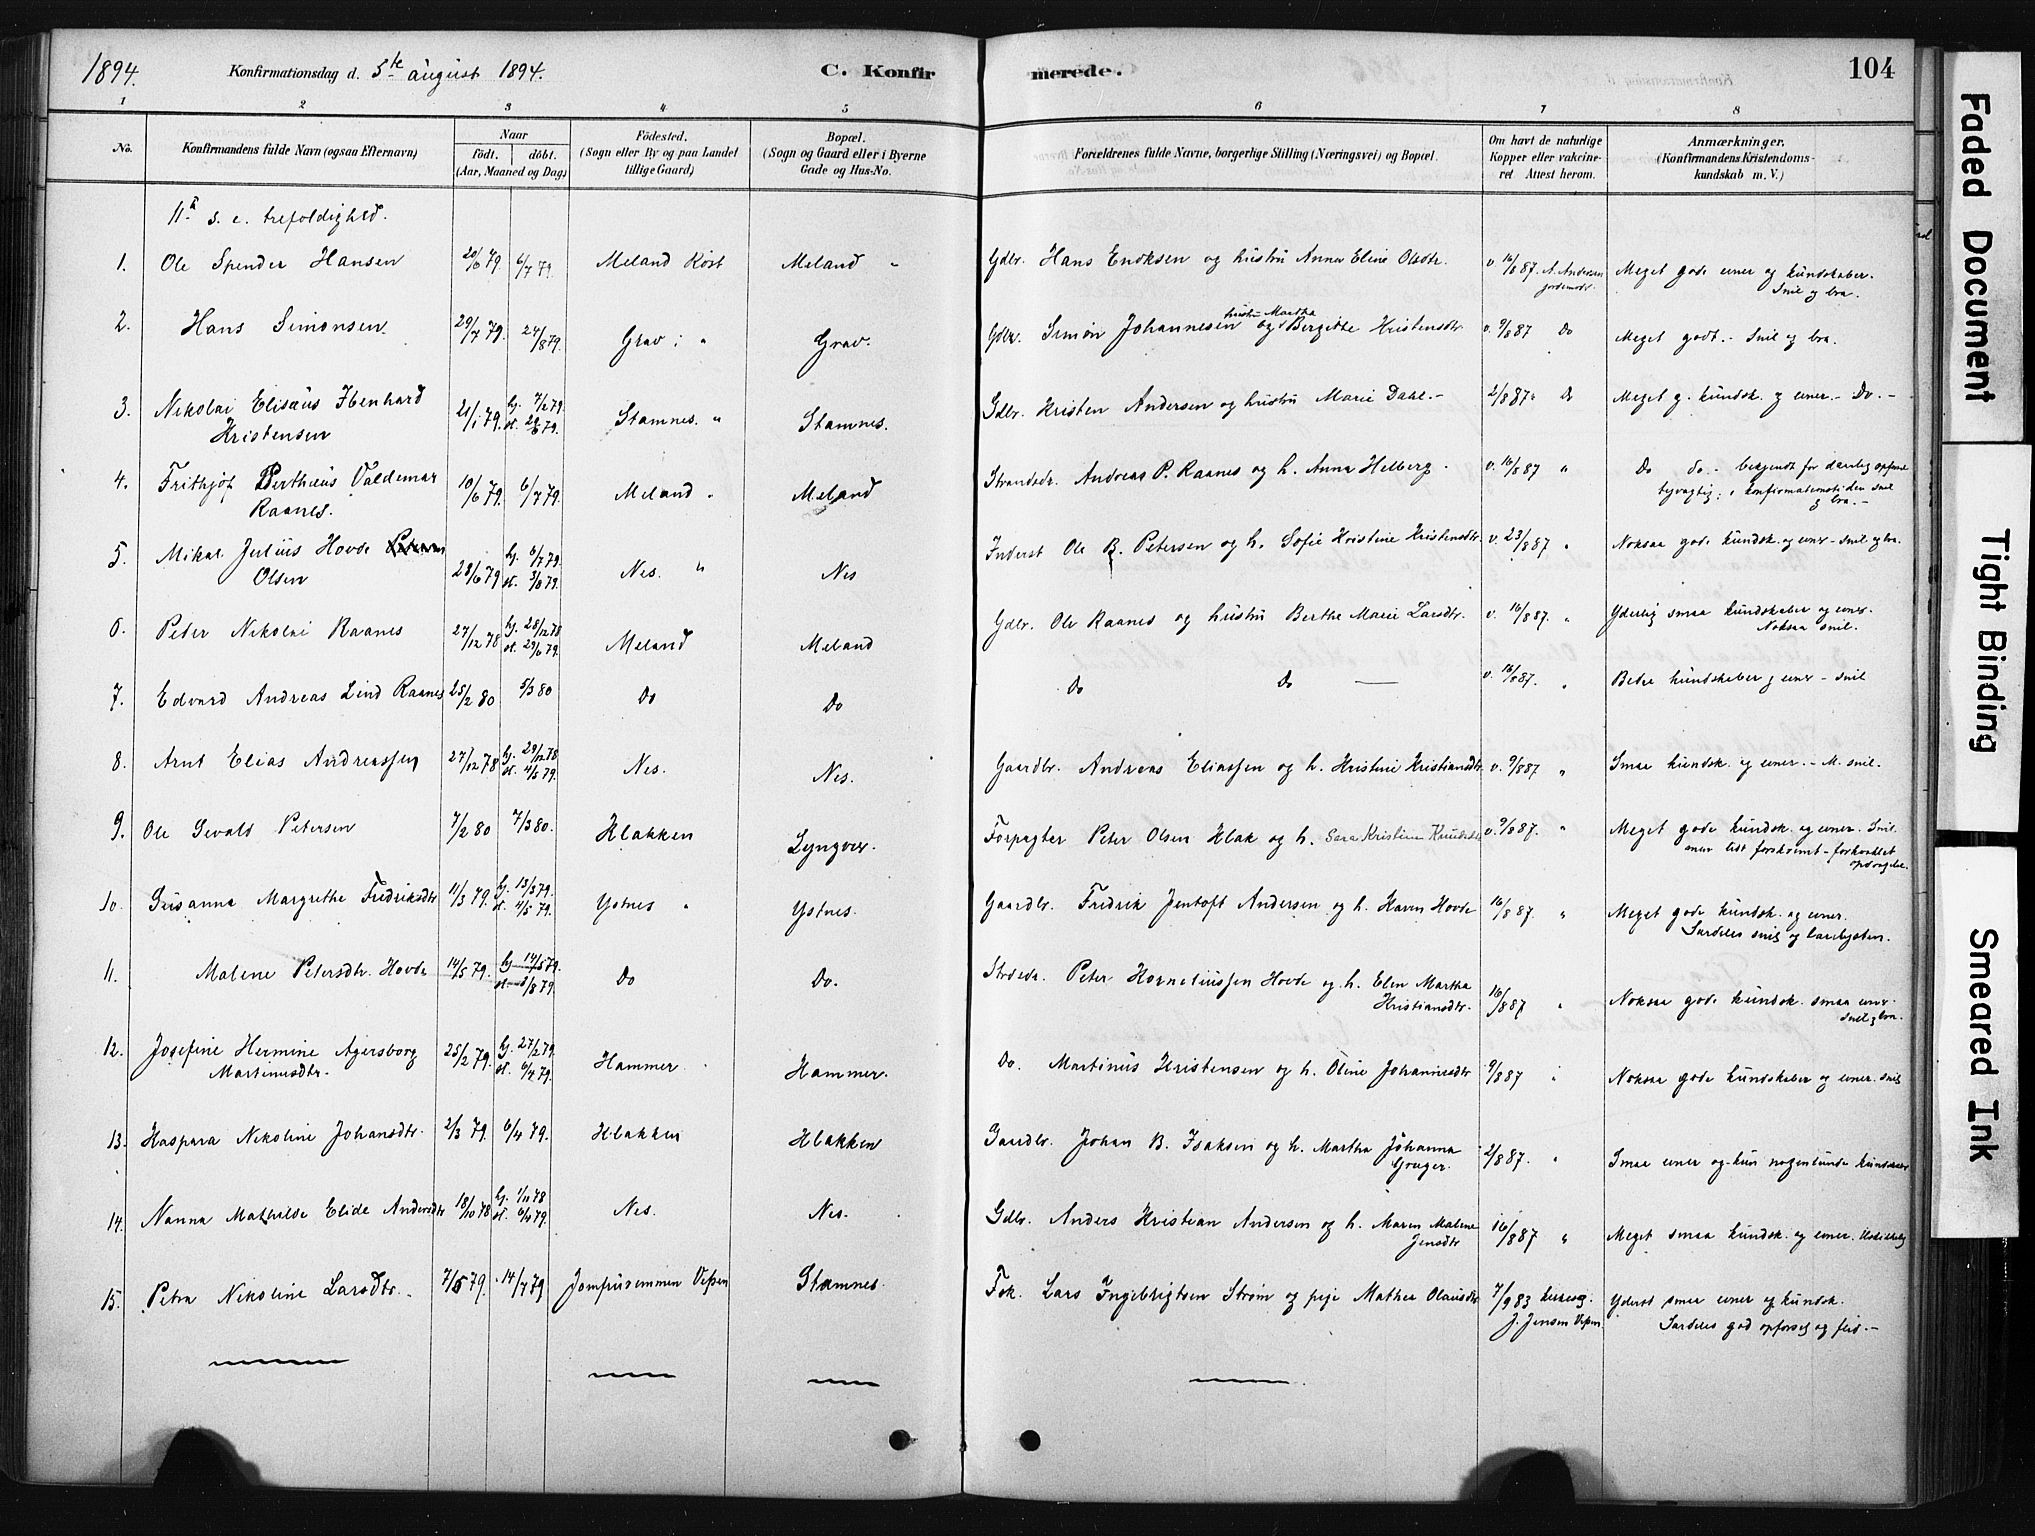 1894.
Konfirmationsdag d. 5te august 1894.
C. Konfirmerede.
104
1 2 3 4 5 6 7 8
No.
Konfirmandens fulde Navn (ogsaa Efternavn)
Naar
födt. döbt.
(Aar, Maaned og Dag)
Födested.
(Sogn eller By og paa Landet
tillige Gaard)
Bopæl.
(Sogn og Gaard eller i Byerne
Gade og Hus-No.
Forældrenes fulde Navne, borgerlige Stilling (Næringsvei) og Bopæl.
Om havt de naturlige
Kopper eller vakcine-
ret Attest herom.
Anmærkninger.
(Konfirmandens Kristendoms-
kundskab m. V.)
11te s. e. trefoldighed.
1. Ole Spender Hansen 20/6 79. 6/7 79. Meland Meland Gdbr. Hans Enoksen og hustru Anna Eline Olsdtr. v. 16/8 87. A. Andersen
jordemoder
Meget gode evner og kundskaber.
Snil og bra.
2. Hans Simonsen 29/7 79. 24/8 79. Grav " Grav. Gdbr. Simon Johannesen og hustru Martha Bergitte Kristensdtr. v. 9/8 87 Do Meget godt. - Snil og bra.
3. Nikolai Elisæus Ibenhard
Kristensen
21/1 79. hj. 7/2 79.
Stamnes. " Stamnes. Gdbr. Kristen Andersen og hustru Marie Dahl. - 2/8 87 Do Meget g. kundsk. og evner. - Do. -
4. Frithjof Berthæus Valdemar
Raanes.
10/6 79. 6/7 79. Meland " Meland Strandsdr. Andreas P. Raanes og h. Anna Helberg. v. 16/8 87 " Do do. -
i konfirmationstiden snil
og bra. -
5. Mikal Julius Hovde
Olsen
28/6 79 hj. 6/7 79.
st. 3/8 79.
Nes. " Nes Inderst Ole B. Petersen og h. Sofie Kristine Kristensdtr. v. 23/8 87 " Noksaa gode kundsk. og evner - snil og bra.
6. Peder Nikolai Raanes 27/12 78 hj. 28/12 78
st. 29/6 79.
Meland Meland Gdbr. Ole Raanes og hustru Berthe Marie Larsdtr. v. 16/8 87. " Yderlig smaa kundskaber og evner.
Noksaa snil.
7. Edvard Andreas Lind Raanes 25/2 80 5/3 80 Do Do Do Do v. 16/8 87. " Bedre kundskaber og evner - snil
8. Arnt Elias Andreassen 27/12 78 hj. 29/12 78
st. 4/5 79.
Nes. Nes. Gaardbr. Andreas Eliassen og h. Kristine Kristiansdtr. v. 9/8 87 " Smaa kundsk. og evner. - M. snil.
9. Ole Sevald Petersen 7/2 80 7/3 80. Klakken Lyngvær. Forpagter Peter Olsen Klak og h. Sara Kristine v. 9/8 87. " Meget gode kundsk. og evner. Snil
men lidt forskræmt
10. Susanna Margrethe Fredriksdtr 11/3 79. hj. 13/3 79.
st. 4/5 79.
Ystnes " Ystnes. Gaardbr. Fredrik Jentoft Andersen og h. Karen Hovde 16/8 87. " Meget gode kundsk. og evner.
Særdeles snil og lærelysten.
11. Malene Petersdtr. Hovde 14/5 79. hj. 14/5 79.
Do Do. Peter Kornelius­sen Hovde og h. Elen Martha
Kristiansdtr.
16/8 87 " Noksaa gode kundsk. smaa evner.
snil og bra.
12. Josefine Hermine Agersborg
Martinusdtr.
25/2 79. hj. 27/2 79.
st. 6/4 79.
Hammer Hammer. Do. Martinus Kristensen og h. Oline Johannesdtr 9/8 87 " Noksaa gode kundskaber og evner. snil
13. Kaspara Nikoline Johansdtr. 2/3 79. 6/4 79. Klakken Klakken Gaardbr. Johan B. Isaksen og h. Martha Johanna
2/8 87. " Smaa evner og kun nogenlunde kundskaber
14. Nanna Mathilde Elide Andersdtr 18/10 78 hj. 1/11 78
st. 6/4 79.
Nes. Nes. Gdbr. Anders Kristian Andersen og h. Maren Malene
Jensdtr
16/8 87 " Meget smaa kundsk. og evner.
15. Petra Nikoline Larsdtr. 7/5 79. 14/7 79 Vefsen Stamnes Lars Ingebrigtsen Strøm og pige Mathea Olausdtr 7/9 83
J. Jensen Vefsen.
Yderst smaa evner og kundsk.
Særdeles god opførsel og flid. -
Faded Document
Tight Binding
Smeared Ink